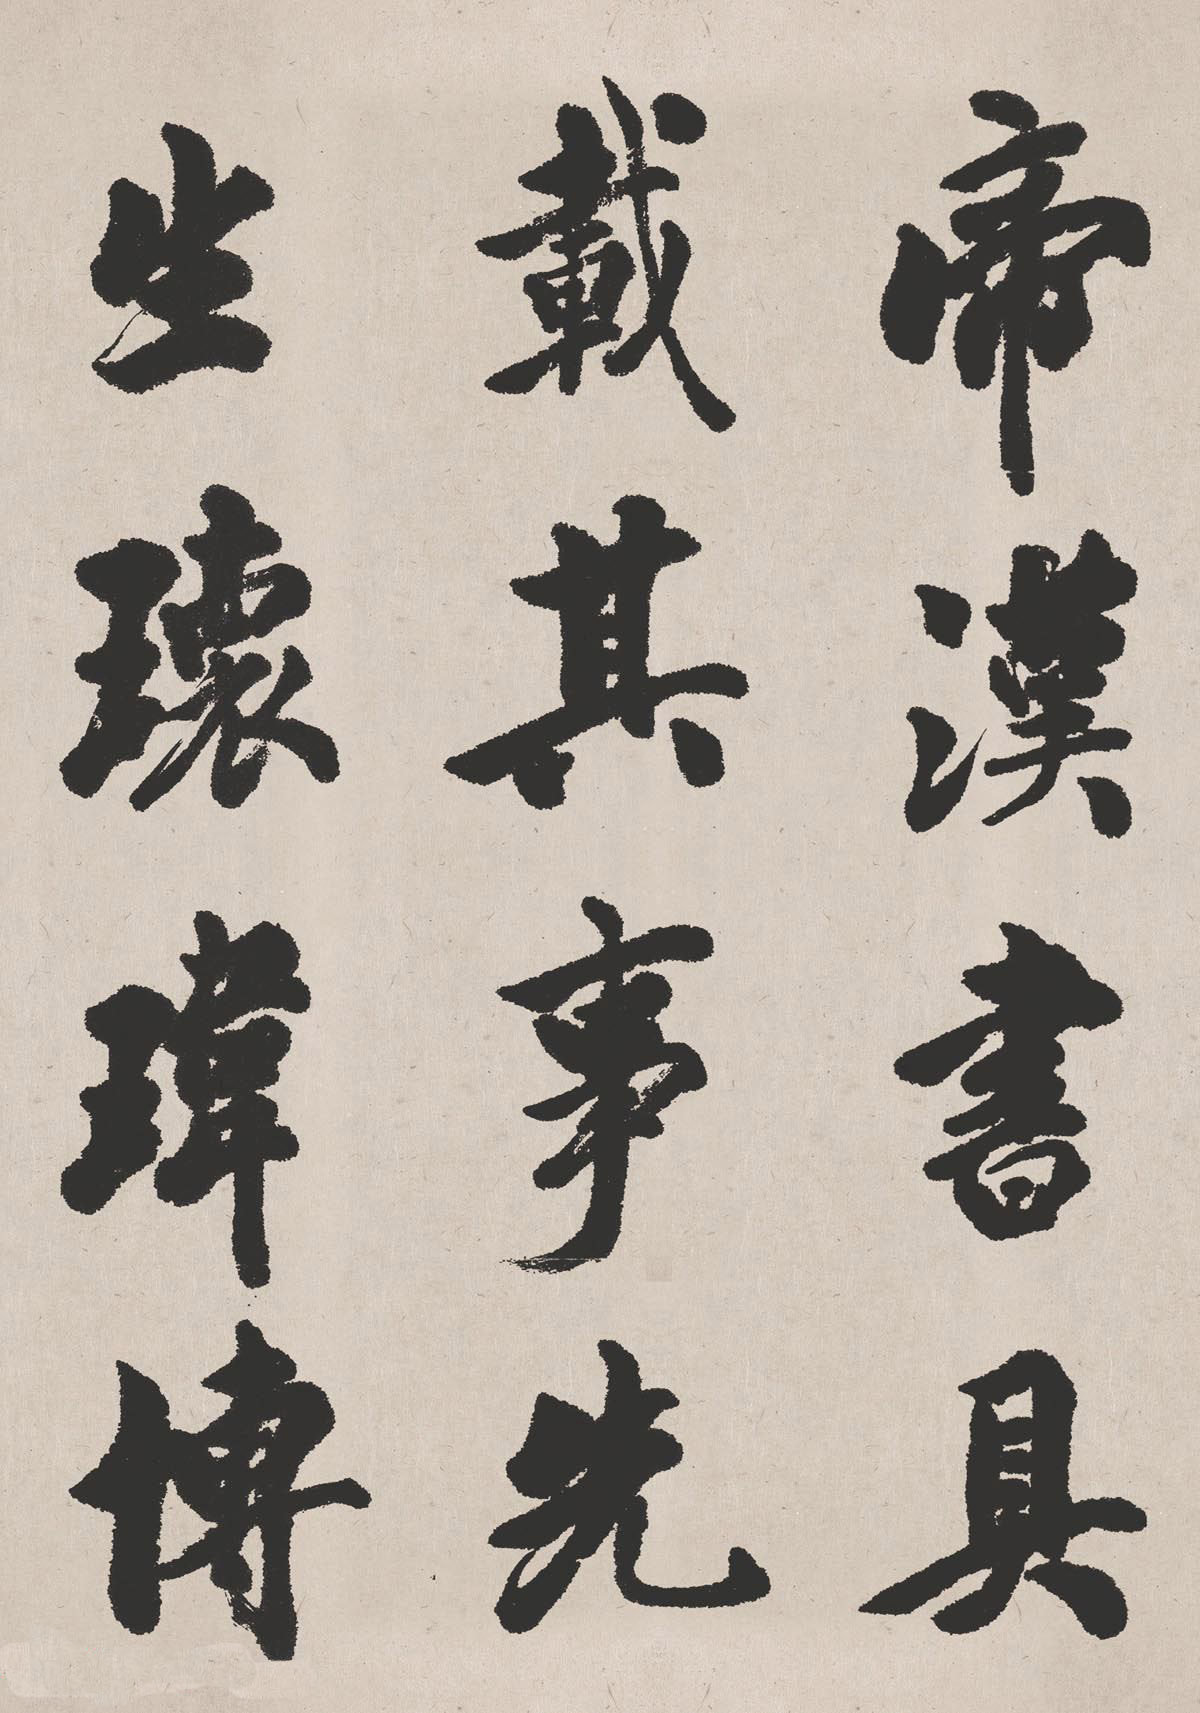 帝漢書具
載其事先
生瓌瑋博